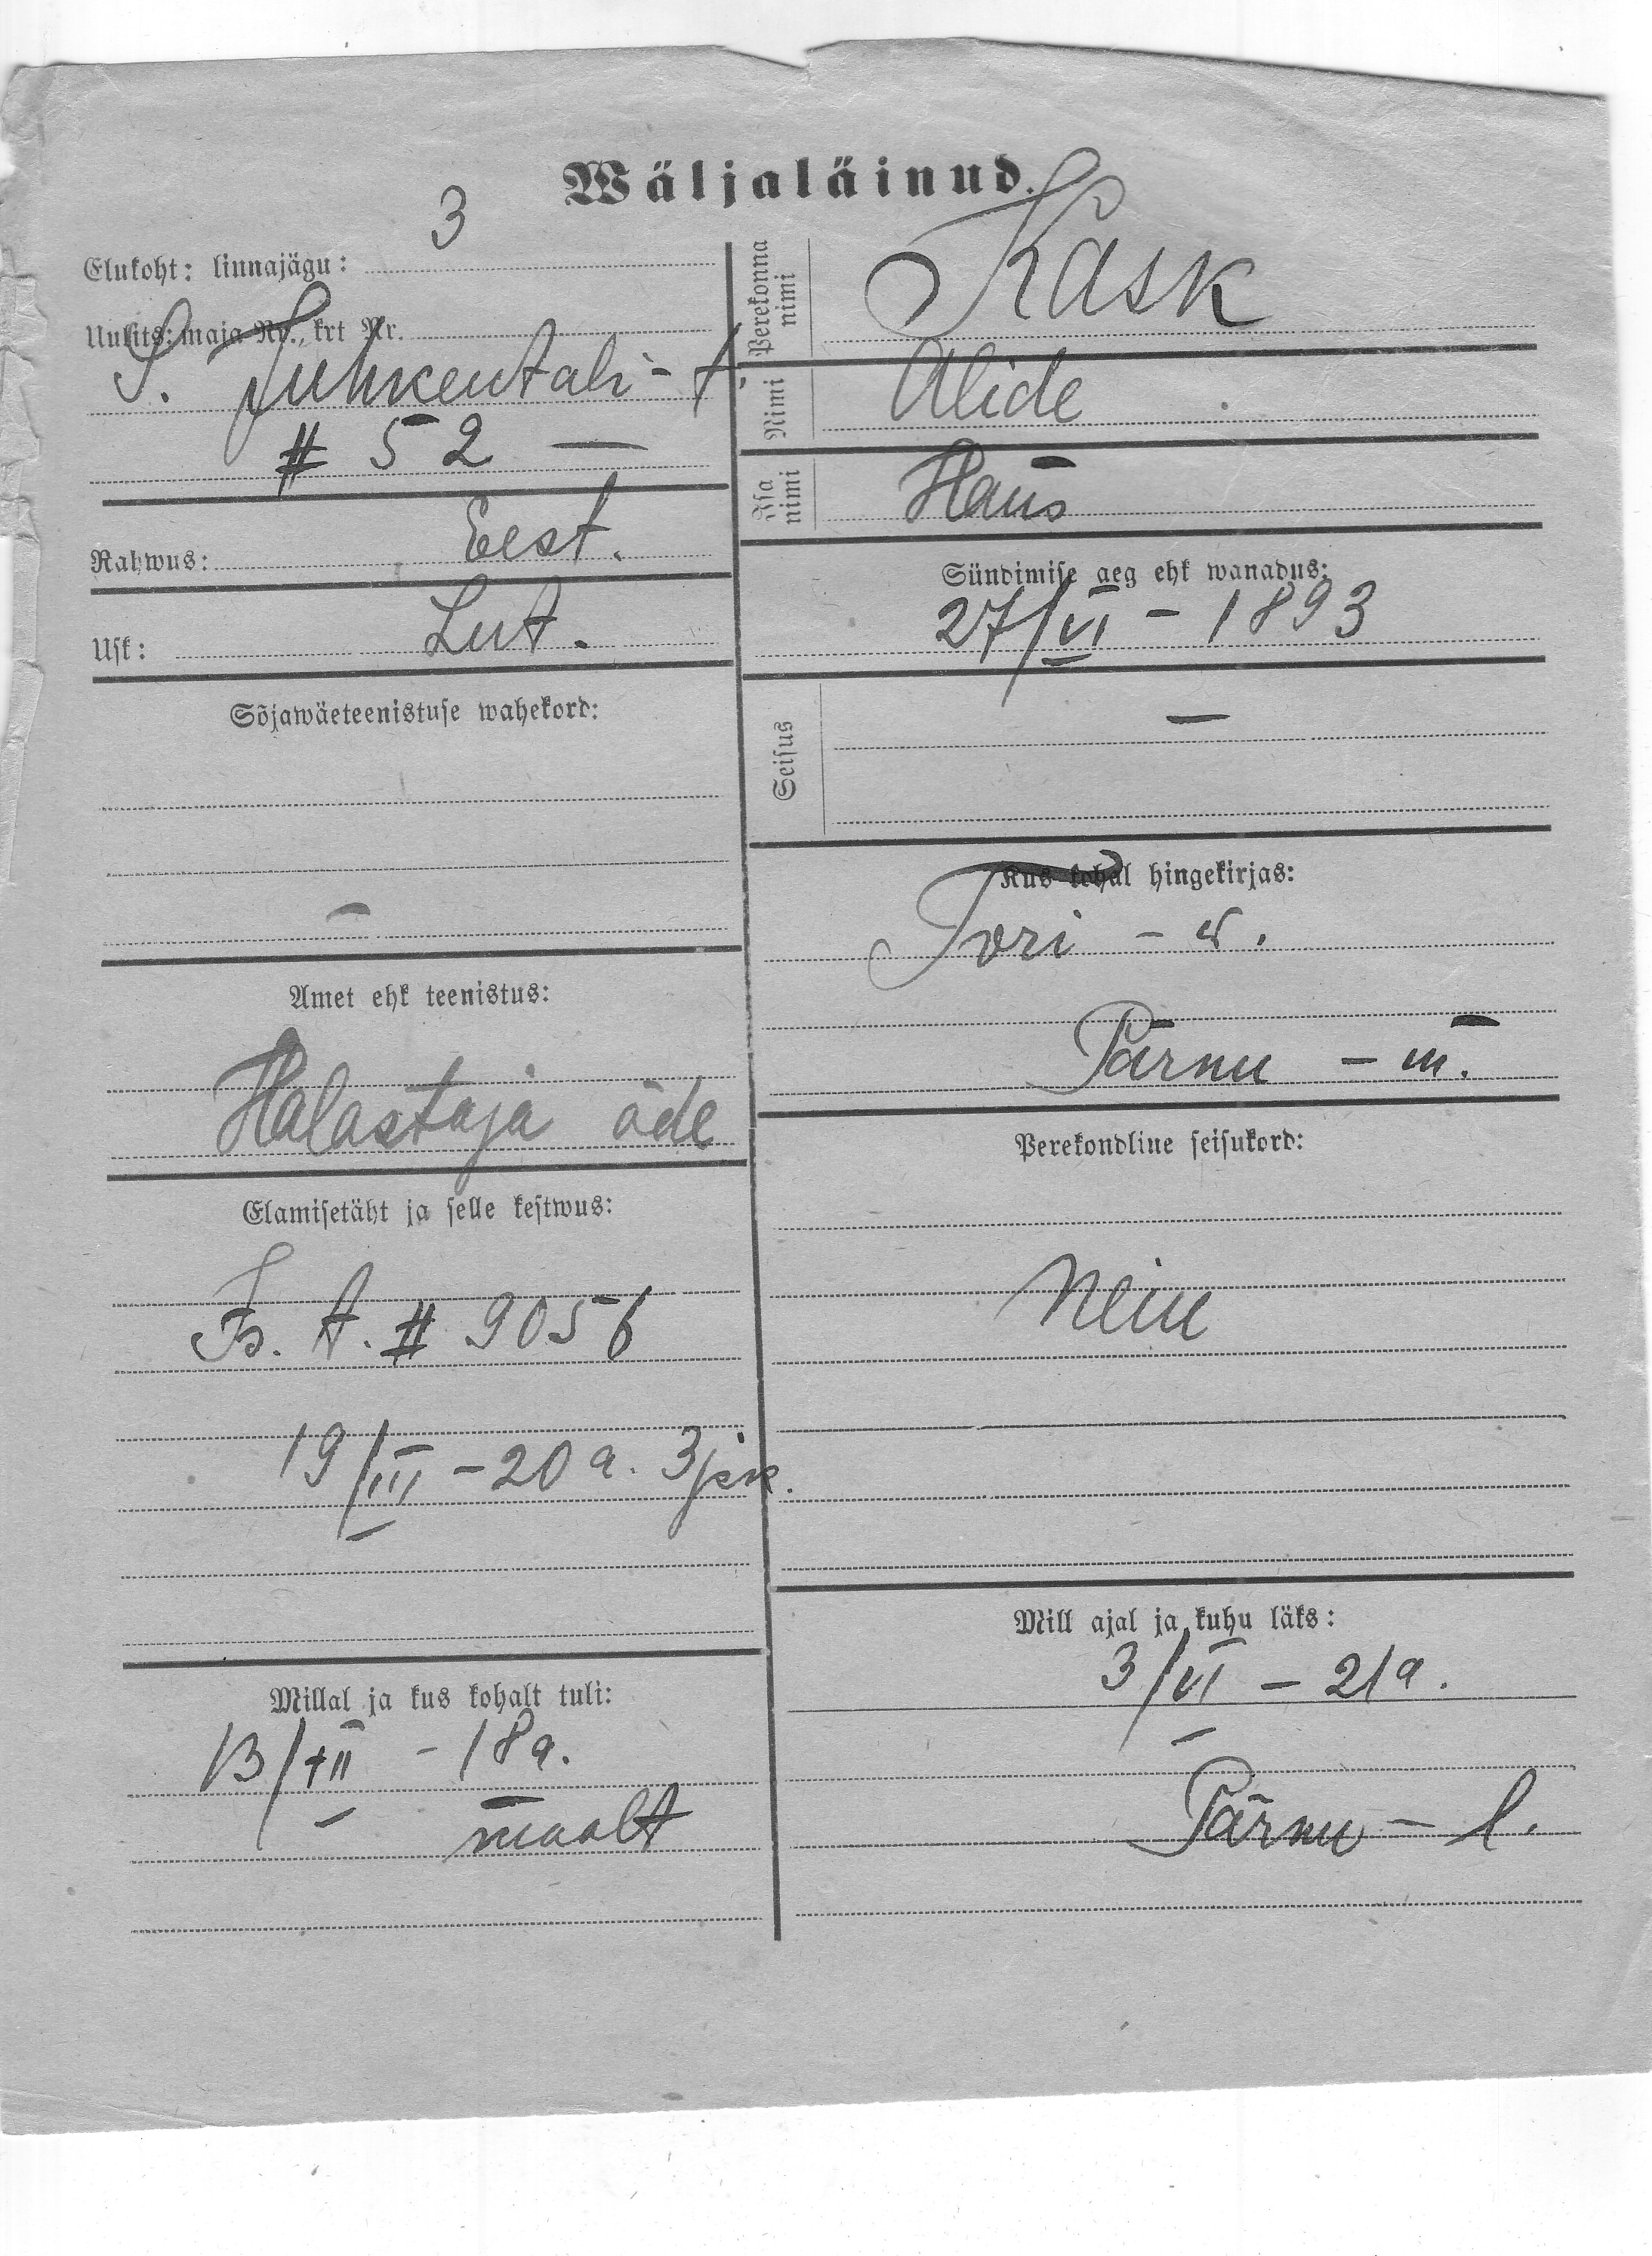 Wäljaläinud.
Elukoht: linnajägu: 3
Uulits: maja Nr., krt Nr.
S. Juhkentali - t
# 52 —
Rahwus: Eest.
Usk: Lut.
Sõjawäeteenistuse wahekord:
—
Amet ehk teenistus:
Halastaja õde
Elamisetäht ja selle kestwus:
t. # 9056
19/III - 20 a. 3 jsk.
Millal ja kus kohalt tuli:
13/XII - 18 a.
maalt
Perekonna nimi
Kask
Nimi
Alide
Isa nimi
Hans
Sündimise aeg ehk wanadus:
27/VI - 1893
Seisus
—
Kus kohal hingekirjas:
Tori - w.
Pärnu - m.
Perekondline seisukord:
Neiu
Mill ajal ja kuhu läks:
3/VI - 21 a.
Pärnu - l.